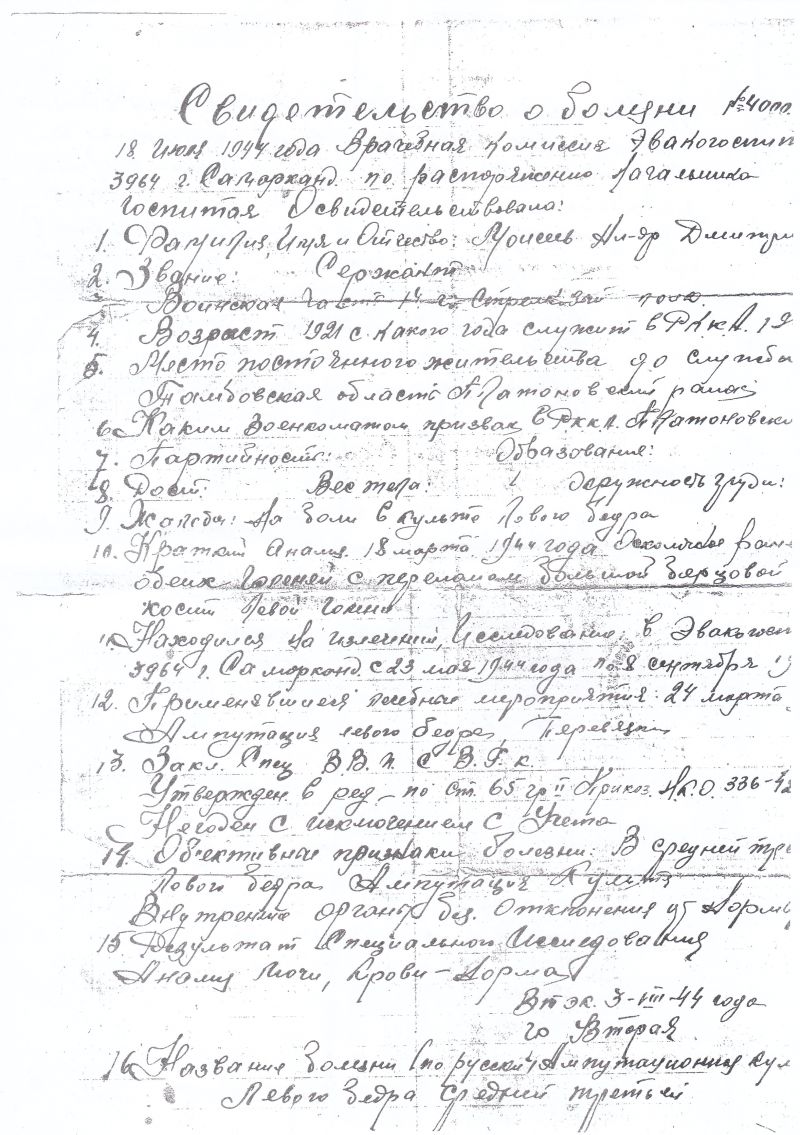 Свидетельство о болезни №4000
18 июля 1944 года Врачебная комиссия Эвакогоспит
3964 г. Самарканд. по распоряжению Начальника
Госпиталя Освидетельствовала:
1. Фамилия, Имя и Отчество: Моисеев Ал-др Дмитри
2. Звание: Сержант
3 Воинская часть стрелковый полк.
4. Возраст 1921 с какого года служит в РККА. 19
5. Место постоянного жительства до службы
Тамбовская область Платоновский район
6 Каким Военкоматом призван в РККА. Платоновски
7. Партийность: Образования:
8. Рост: Вес тела: Окружность груди:
9. Жалобы: На боли в культе левого бедра
10. Краткий Анамн. 18 марта 1944 года Осколочное ране
обеих голеней с переломом большой берцовой
кости левой голени
11. Находился на излечении, Исследовании: в Эвакогосп
3964 г. Самарканд. с 23 мая 1944 года по 8 сентября 19
12. Применявшиеся лечебные мероприятия: 24 марта
Ампутация левого бедра, Перевязки
13. Закл. Спец В.В.К. С В.Г.К.
Утвержден в ред. по ст. 65 гр II Приказ Н.К.О. 336-42
Негоден с исключением с учета
14. Объективные признаки болезни: В средней тре
левого бедра Ампутация Культя
Внутренние органы без. отклонения от нормы
15 Результат Специального Исследования
Анализ мочи, крови - Норма
Втэк. 3-VIII-44 года
гр Вторая
16. Название болезни (по русски) Ампутационная кул
Левого бедра средней третьей